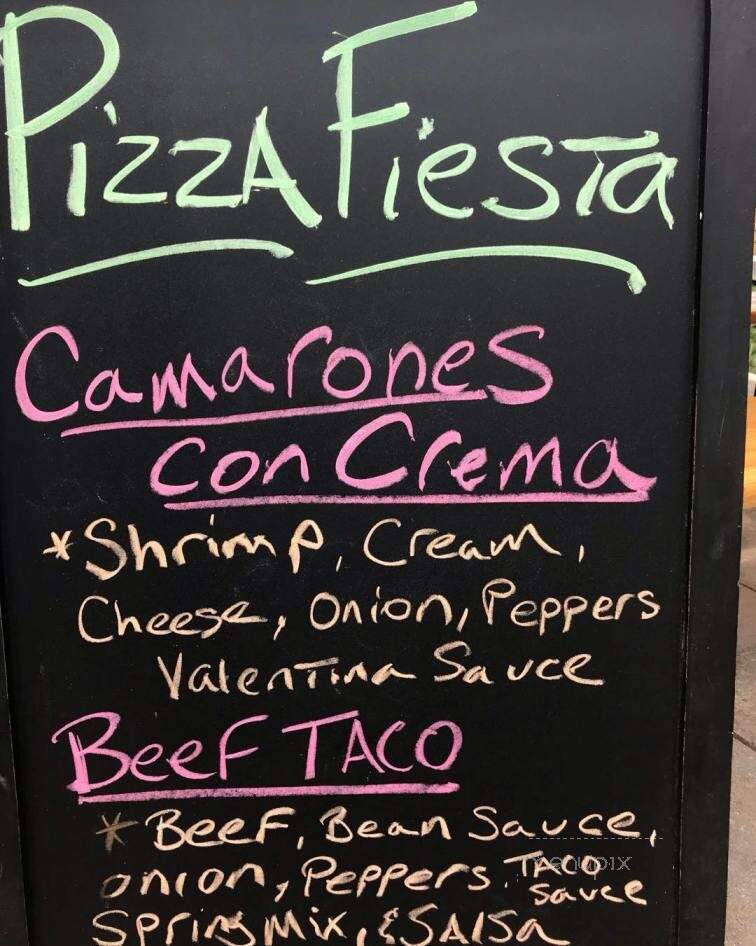 Pizza Fiesta
Camarones
con Crema
*Shrimp, Cream,
Cheese, Onion, Peppers
Valentina Sauce
Beef TACO
*Beef, Bean Sauce,
onion, Peppers, TACO
sauce
Spring Mix, & SALSA
menupix